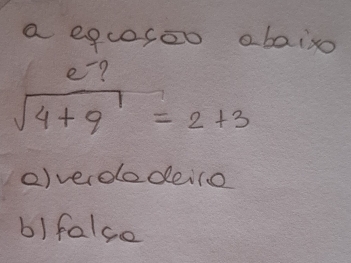 a equação abaixo
é?
√4+9 = 2+3
a) verdadeira
b) falça